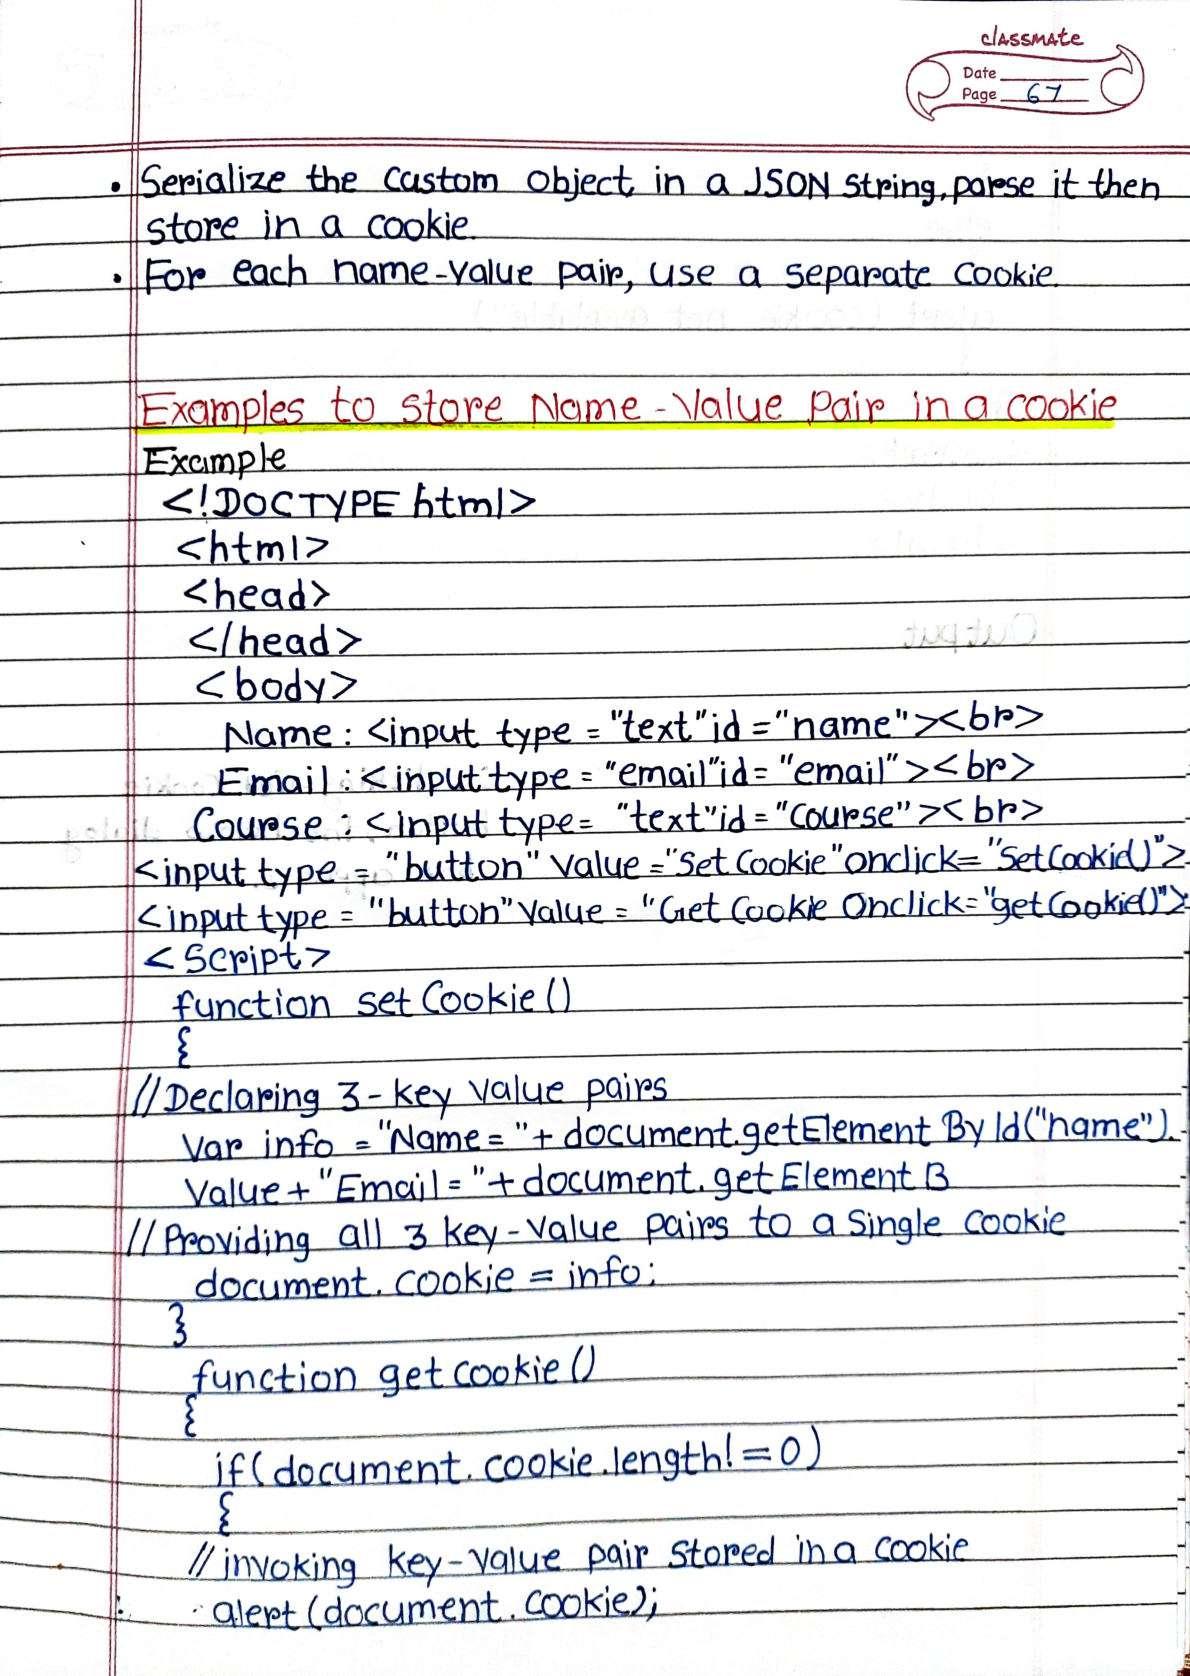 classmate
Date
Page 67
• Serialize the custom object in a JSON string, parse it then
store in a cookie.
• For each name-value pair, use a separate cookie.
Examples to store Name-Value Pair in a cookie
Example
<!DOCTYPE html>
<html>
<head>
</head>
<body>
Name : <input type = "text" id = "name"><br>
Email : <input type = "email" id = "email"><br>
Course : <input type = "text" id = "course"><br>
<input type = "button" Value = "Set Cookie" onclick= "SetCookie()">
<input type = "button" Value = "Get Cookie Onclick= "getCookie()">
<Script>
function setCookie()
{
//Declaring 3-key value pairs
Var info = "Name = "+ document.getElementById("name").
Value + "Email = "+ document.getElement B
//Providing all 3 key-value pairs to a single cookie
document.cookie = info;
}
function getcookie()
{
if(document.cookie.length!=0)
{
//invoking key-value pair stored in a cookie
alert(document.cookie);